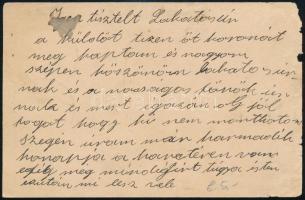 Igen tisztelt Lakatos úr
a küldött tizen öt koronáit
meg kaptam és nagyon
szépen köszönöm Lakatos úr
nak és a nagyságos
nak és mert igazán oly jól
hogy ki nem mondhatom
szegény uram már harmadik
hónapja a harctéren van
eddig meg mindég írt tudja isten
ezután mi lesz vele